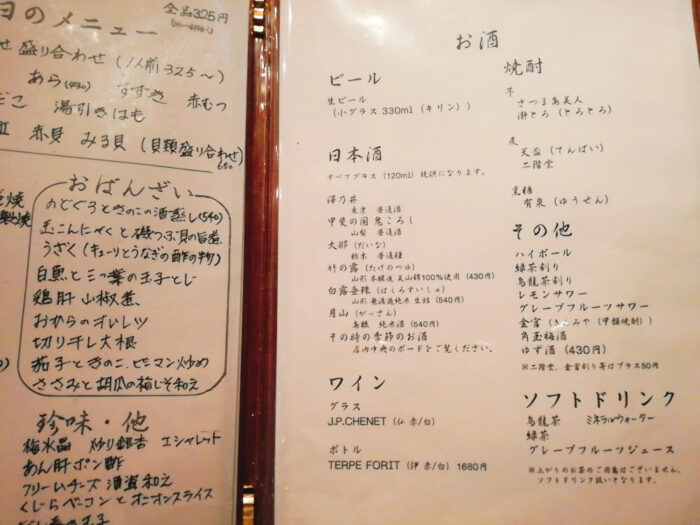 日のメニュー
全品325円
盛り合わせ (1人前325〜)
あら(430) すずき 赤むつ
湯引きはも
赤貝 みる貝 (貝類盛り合わせ 650)
おばんざい
のどぐろときのこの酒蒸し(540)
玉こんにゃくと磯つぶ貝の旨煮
うざく(キューリとうなぎの酢の物)
白魚と三つ葉の玉子とじ
鶏肝山椒煮
おからのオムレツ
切り干し大根
茄子ときのこ、ピーマン炒め
ささみと胡瓜の梅じそ和え
珍味・他
梅水晶 炒り銀杏 エシャレット
あん肝ポン酢
クリームチーズ酒盗和え
くじらベーコンとオニオンスライス
お酒
ビール
生ビール
(小グラス 330ml (キリン))
日本酒
すべてグラス (120ml) 提供になります。
澤乃井
東京 普通酒
甲斐の国鬼ころし
山梨 普通酒
大那 (だいな)
栃木 普通種
竹の露 (たけのつゆ)
山形 本醸造 美山錦100%使用 (430円)
白露垂珠 (はくろすいしゅ)
山形 無濾過純米 生詰 (540円)
月山 (がっさん)
島根 純米酒 (540円)
その時の季節のお酒
店内中央のボードをご覧ください。
ワイン
グラス
J.P.CHENET (仏 赤/白)
ボトル
TERPE FORIT (伊 赤/白) 1680円
焼酎
芋
さつま島美人
瀞とろ (とろとろ)
麦
天盃 (てんぱい)
二階堂
黒糖
有泉 (ゆうせん)
その他
ハイボール
緑茶割り
烏龍茶割り
レモンサワー
グレープフルーツサワー
金宮 (きんみや (甲類焼酎))
角玉梅酒
ゆず酒 (430円)
※二階堂、金宮割り等はプラス50円
ソフトドリンク
烏龍茶 ミネラルウォーター
緑茶
グレープフルーツジュース
※上がりのお茶のご用意はございません。
ソフトドリンク扱いとなります。